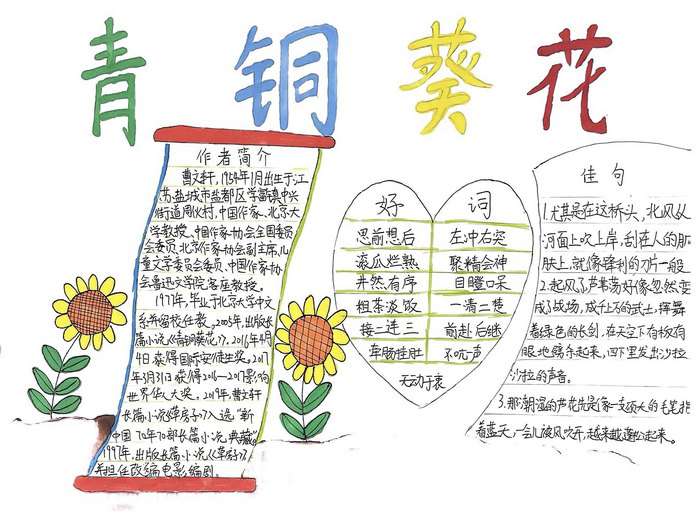 青铜葵花
作者简介
曹文轩,1954年1月出生于江
苏盐城市盐都区学富镇中兴
街道周伙村,中国作家、北京大
学教授、中国作家协会全国委员
会委员,北京作家协会副主席,儿
童文学委员会委员、中国作家协
会鲁迅文学院客座教授。
1977年,毕业于北京大学中文
系并留校任教。2005年,出版长
篇小说《青铜葵花》,2016年4月
4日获得国际安徒生奖。2017
年3月31日获得2016—2017影响
世界华人大奖。2019年,曹文轩
长篇小说《草房子》入选"新
中国70年70部长篇小说典藏"。
1997年,出版长篇小说《草房子》,
并担任改编电影编剧。
好 词
思前想后 左冲右突
滚瓜烂熟 聚精会神
井然有序 目瞪口呆
粗茶淡饭 一清二楚
接二连三 前赴后继
牵肠挂肚 不吭声
无动于衷
佳句
1.尤其是在这桥头,北风从
河面上吹上岸,刮在人的肌
肤上,就像锋利的刀片一般
2.起风了,芦苇荡好像忽然变
成了战场,成千上万的武士,挥舞
着绿色的长剑,在天空下有板有
眼地劈杀起来,四下里发出沙拉
沙拉的声音。
3.那潮湿的芦花先是像一支硕大的毛笔指
着蓝天,一会儿被风吹开,越来越蓬松起来。